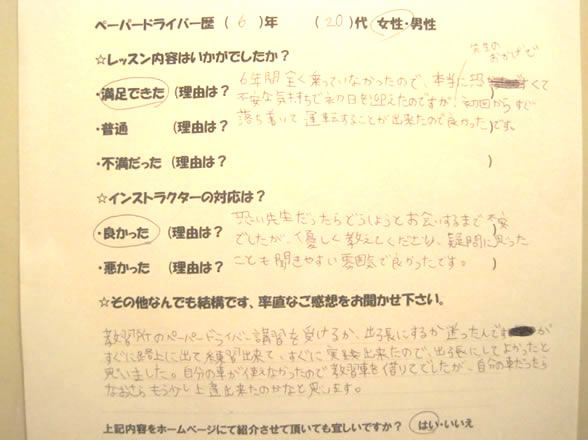 ペーパードライバー歴 ( 6 )年 ( 20 )代 女性・男性
☆レッスン内容はいかがでしたか?
先生の
おかげで
・満足できた (理由は? 6年間全く乗っていなかったので、本当に恐くて
不安な気持ちで初日を迎えたのですが、初回からすぐ
・普通 (理由は? 落ち着いて運転することが出来たので良かったです。)
・不満だった (理由は? )
☆インストラクターの対応は?
恐い先生だったらどうしようとお会いするまで不安
・良かった (理由は? でしたが、優しく教えてくださり、疑問に思った )
・悪かった (理由は? ことも聞きやすい雰囲気で良かったです。 )
☆その他なんでも結構です、率直なご感想をお聞かせ下さい。
教習所のペーパードライバー講習を受けるか、出張にするか迷ったんですが
すぐに路上に出て練習出来て、すぐに実践出来たので、出張にしてよかったと
思いました。自分の車が使えなかったので教習車を借りてでしたが、自分の車だったら
なおさらもう少し上達出来たのかなと思います。
上記内容をホームページにて紹介させて頂いても宜しいですか? はい・いいえ